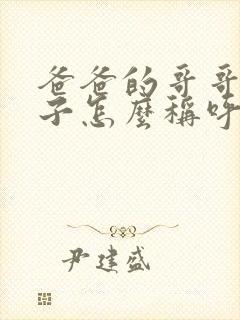 爸爸的哥哥
子怎麼稱呼
尹建盛